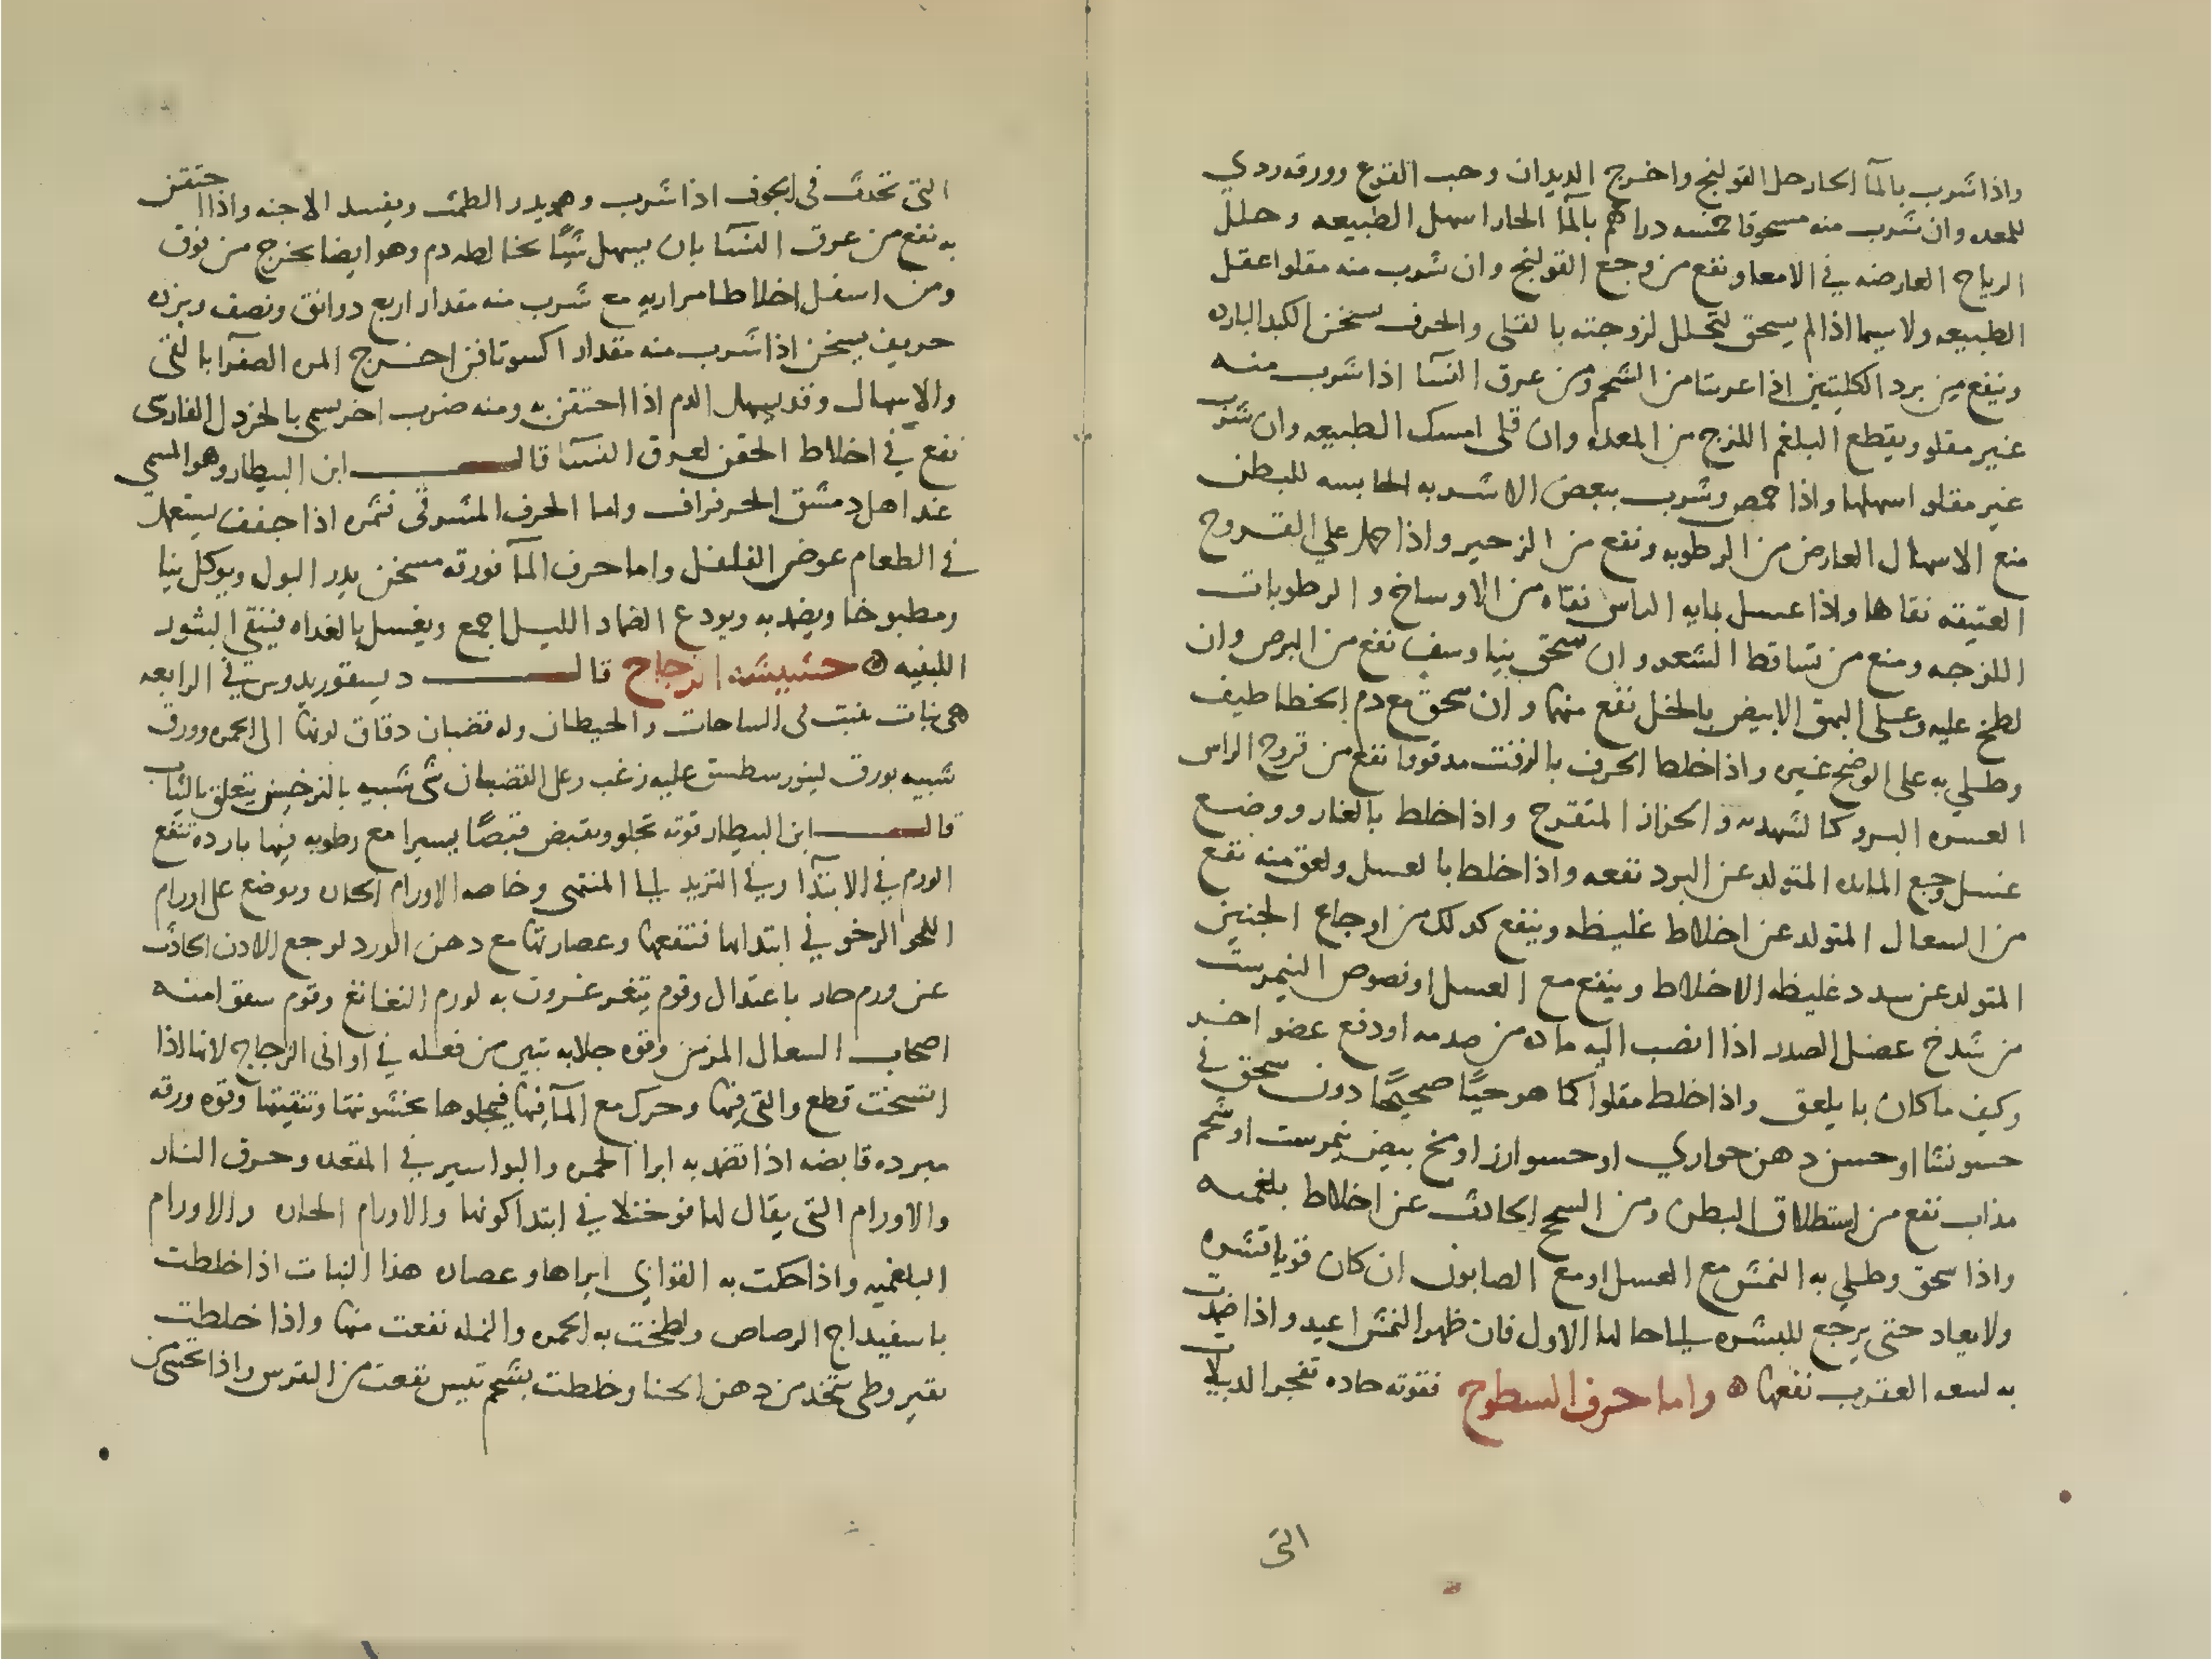 واذا شرب بالمآ الحار حل القولنج واخرج الديدان وحب القرع وورقه ردي
للمعده وان شرب منه مسحوقا خمسه دراهم بالمآ الحار اسهل الطبيعه وحلل
الرياح العارضه في الامعا ونفع من وجع القولنج وان شرب منه مقلوا عقل
الطبيعه ولا سيما اذا لم يسحق لتحلل لزوجته بالقلي والحرف يسخن الكبد البارده
وينفع من برد الكليتين اذا عرستا من الشحم ومن عرق النسآ اذا شرب منه
غير مقلو ويقطع البلغم اللزج من المعده وان قلى امسك الطبيعه وان شرب
غير مقلو اسهلها واذا حمص وشرب ببعض الاشربه الحابسه للبطن
منع الاسهال العارض من الرطوبه ونفع من الزحير واذا حمل علي القروح
العتيقه نقاها واذا غسل بمايه الراس نقاه من الاوساخ والرطوبات
اللزجه ومنع من تساقط الشعر وان سحق نيا وسف نفع من البرص وان
لطخ عليه وعلى البهق الابيض بالخل نفع منهما وان سحق مع دم الخطاطيف
وطلي به على الوضح غيره واذا خلط الحرف بالزفت مدقوقا نفع من قروح الراس
العسره البرو كالشهديه والحزاز المتقرح واذا خلط بالغار ووضع
على وجع المائده المتولد عن البرد نفعه واذا خلط بالعسل ولعق منه نفع
من السعال المتولد عن اخلاط غليظه وينفع كذلك من اوجاع الجنبين
المتولد عن سدد غليظه الاخلاط وينفع مع العسل او نصوص النيمرست
من شدخ عضل الصدر اذا انصب اليه ماده من صدمه او دفع عضو اخر
وكيف ما كان بايلعق واذا خلط مقلوا كما هو حيًا صحيحًا دون سحق في
حسو نشا او حسو دهن حواري او حسو ارز او مخ بيض نيمرست او شحم
مذاب نفع من استطلاق البطن ومن السحج الحادث عن اخلاط بلغميه
واذا سحق وطلي به النمش مع العسل او مع الصابون ان كان قويا قشره
ولا يعاد حتى يرجع للبشره الي احالها الاول فان ظهر النمش اعيد واذا ضمدت
به لسعه العقرب نفعها ه واما حرف السطوح فقوته حاده تفجر الدبيلات
التى
التى تحدث في الجوف اذا شرب وهو يدر الطمث ويفسد الاجنه واذا احتقن
به نفع من عرق النسآ بان يسهل شيًا يخالطه دم وهو ايضا يخرج من فوق
ومن اسفل اخلاطا مراريه مع شرب منه مقدار اربع دوانق ونصف وبزره
حريف يسخن اذا شرب منه مقدار اكسوثافن اخرج المره الصفرآ بالقى
والاسهال وقد يسهل الدم اذا احتقن به ومنه ضرب اخر يسمى بالخردل الفارى
نفع في اخلاط الحقن لعرق النسآ قال ابن البيطار وهو المسمي
عند اهل دمشق الحرفراف واما الحرف المشرقى فثمره اذا جفف يستعمل
في الطعام عوض الفلفل واما حرف المآ فورقه مسخن يدر البول ويوكل نيا
ومطبوخا ويضمد به ويودع الضماد الليل اجمع ويغسل بالغداه فينقي البثور
اللبنيه ه حشيشه الزجاج قال ديسقوريدوس في الرابعه
هى نبات ينبت فى الساحات والحيطان وله قضبان دقاق لونها الى الحمره وورق
شبيه بورق لينورسطس عليه زغب وعلى القضبان شى شبيه بالزر خشن يتعلق بالثياب
قال ابن البيطار قوته تجلو وبقبض قبضًا يسيرا مع رطوبه فيها بارده تنفع
الورم في الابتدآ وفي التزيد الي المنتهى وخاصه الاورام الحاره ويوضع على اورام
اللحم الرخو في ابتدايها فتنفعها وعصارتها مع دهن الورد لوجع الاذن الحادث
عن ورم حار باعتدال وقوم يتغرغرون به لورم النغانغ وقوم سقوا منه
اصحاب السعال المزمن وقوه جلايه تبين من فعله في آوانى الزجاج لانها اذا
اتسخت قطع والتى فيها وحرك مع المآ فيها فيجلوها بخشونتها وتنقيتها وقوه ورقه
مبرده قابضه اذا تضمد به ابرا الحمره والبواسير في المقعده وحرق النار
والاورام التى يقال لها فوخثلا في ابتدا كونها والاورام الحاره والاورام
البلغميه واذا حكت به القوابي ابراها وعصاره هذا النبات اذا خلطت
باسفيداج الرصاص ولطخت به الحمره والنمله نفعت منها واذا خلطت
بقيروطى متخذ من دهن الحنا وخلطت بشحم تيس نفعت من النقرس واذا تحسى من